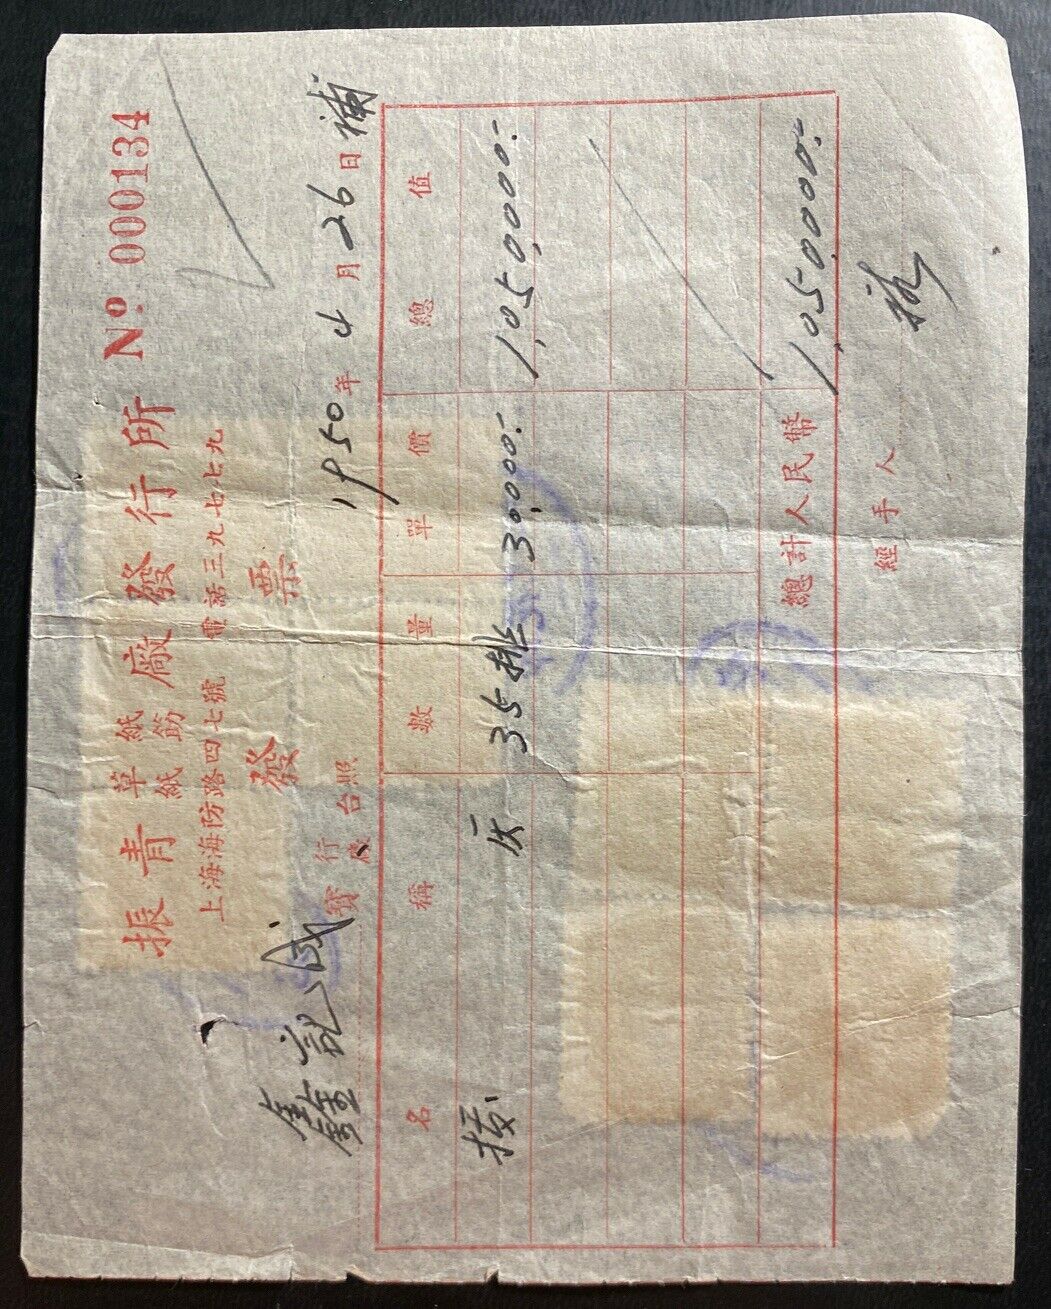 振青草紙紙筋廠發行所 Nº 000134
上海海防路四七號 電話三九七七九
發票
鑫記 寶行號台照 1950年4月26日補
名稱 數量 單價 總值
35排 30,000.- 1,050,000.-
總計人民幣 1,050,000.-
經手人